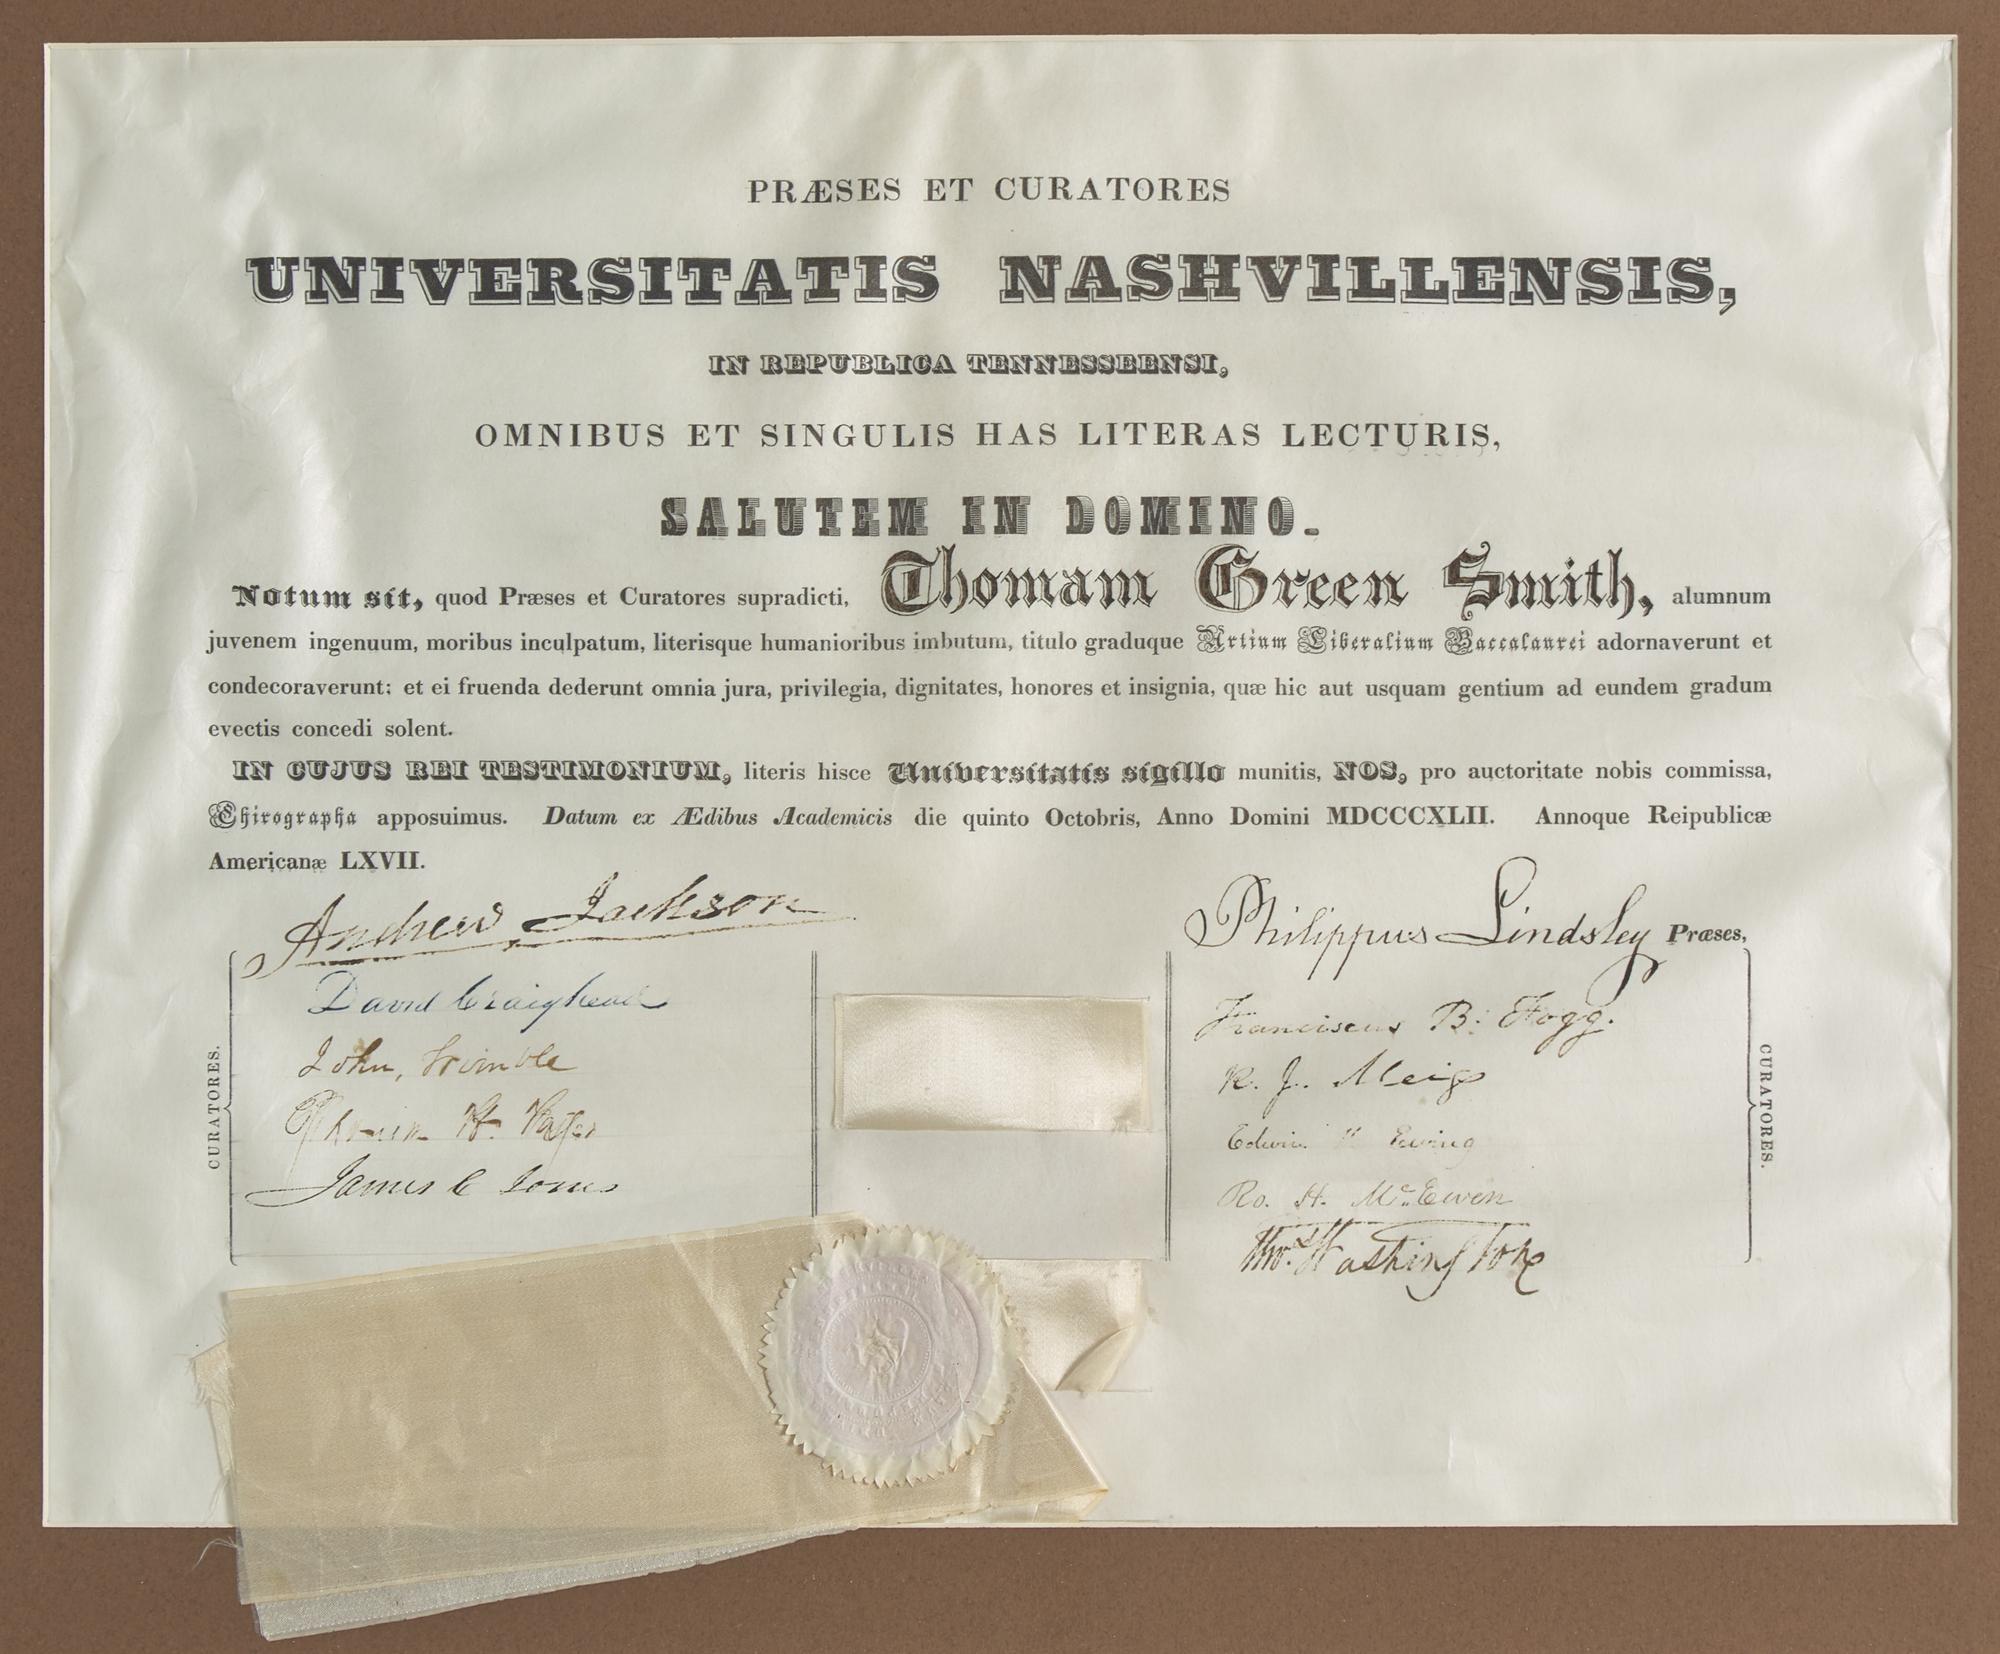 PRÆSES ET CURATORES
UNIVERSITATIS NASHVILLENSIS,
IN REPUBLICA TENNESSEENSI,
OMNIBUS ET SINGULIS HAS LITERAS LECTURIS,
SALUTEM IN DOMINO.
Notum sit, quod Præses et Curatores supradicti, Thomam Green Smith, alumnum
juvenem ingenuum, moribus inculpatum, literisque humanioribus imbutum, titulo graduque Artium Liberalium Baccalaurei adornaverunt et
condecoraverunt: et ei fruenda dederunt omnia jura, privilegia, dignitates, honores et insignia, quæ hic aut usquam gentium ad eundem gradum
evectis concedi solent.
IN CUJUS REI TESTIMONIUM, literis hisce Universitatis sigillo munitis, NOS, pro auctoritate nobis commissa,
Chirographa apposuimus. Datum ex Ædibus Academicis die quinto Octobris, Anno Domini MDCCCXLII. Annoque Reipublicæ
Americanæ LXVII.
Andrew Jackson
David Craighead
John Trimble
James C Jones
CURATORES.
Philippus Lindsley Præses,
Franciscus B. Fogg.
R. J. Meigs
Edwin H Ewing
Ro. H. McEwen
Tho. Washington
CURATORES.